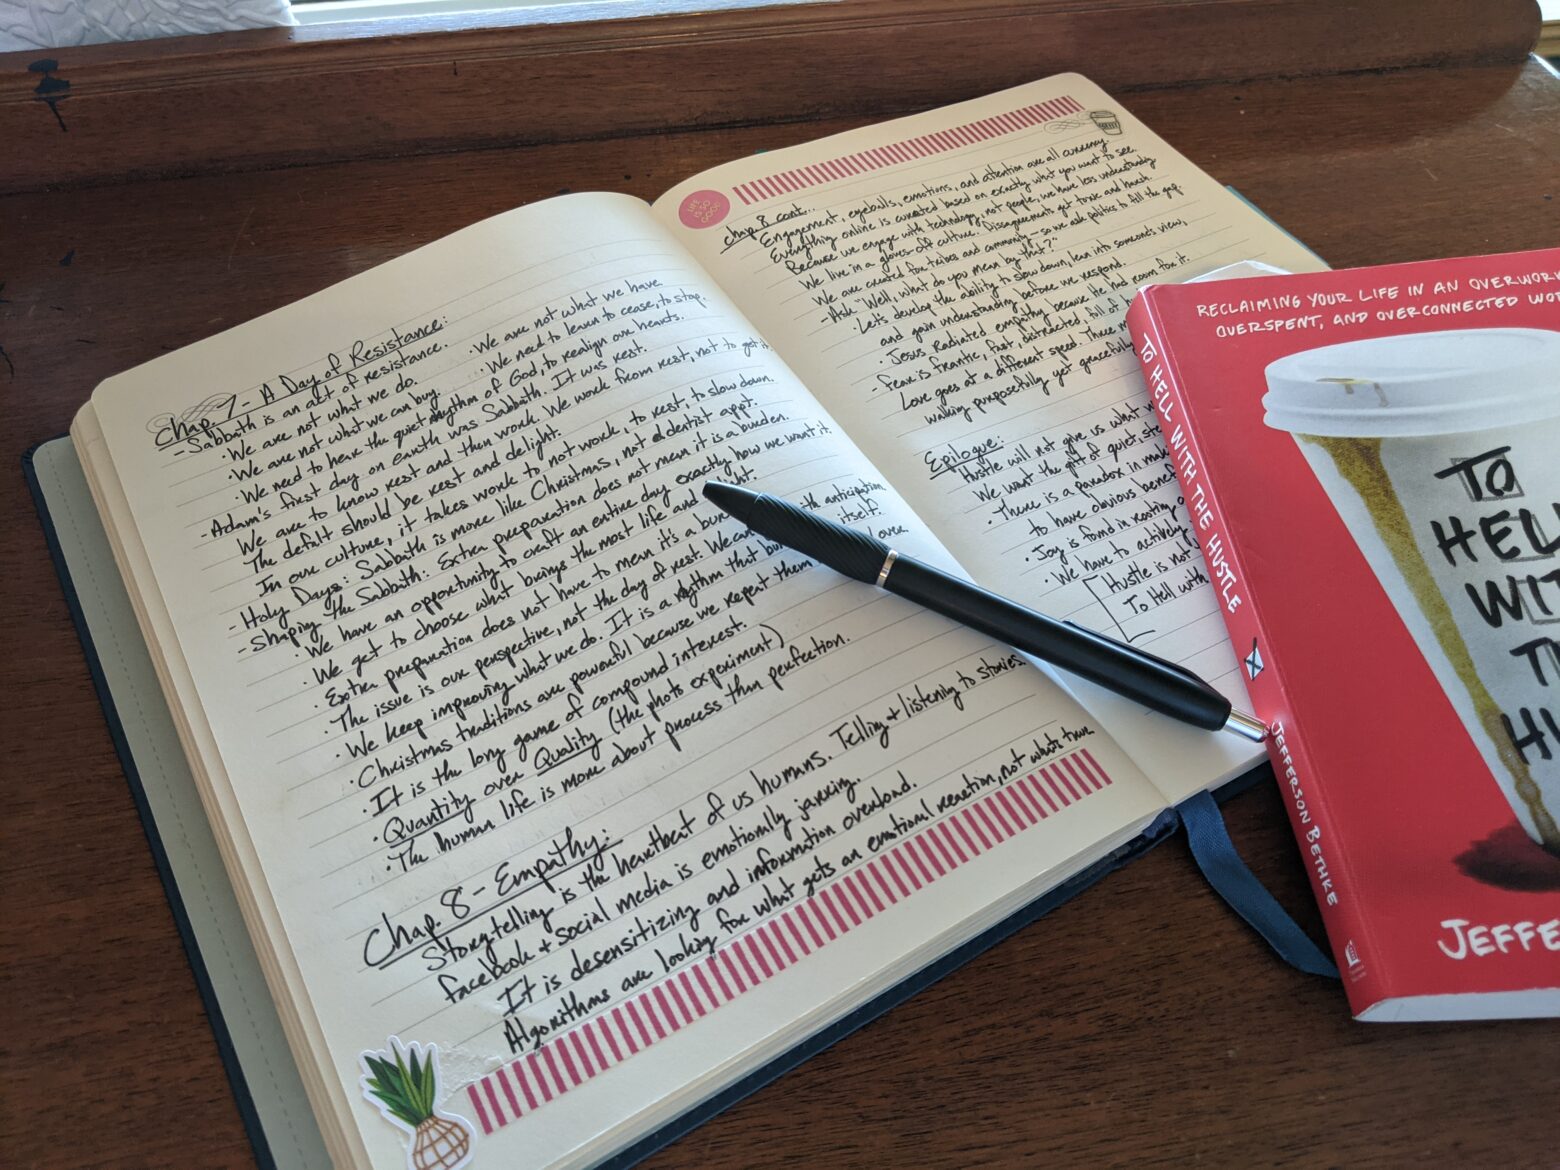 Chap. 7 - A Day of Resistance:
- Sabbath is an act of resistance.
· We are not what we do. · We are not what we have
· We are not what we can buy. · We need to learn to cease, to stop.
We need to have the quiet rhythm of God, to realign our hearts.
- Adam's first day on earth was Sabbath. It was rest.
We are to know rest and then work. We work from rest, not to get it.
The defalt should be rest and delight.
In our culture, it takes work to not work, to rest, to slow down.
- Holy Days: Sabbath is more like Christmas, not a dentist appt.
- Shaping the Sabbath: Extra preparation does not mean it is a burden.
· We have an opportunity to craft an entire day exactly how we want it.
We get to choose what brings the most life and
· Extra preparation does not have to mean it's a anticipation
The issue is our perspective, not the day of rest. We can itself.
· We keep improving what we do. It is a rhythm that over
· Christmas traditions are powerful because we repeat them
· It is the long game of compound interest.
· Quantity over Quality (the photo experiment)
· The human life is more about process than perfection.
Chap. 8 - Empathy:
Storytelling is the heartbeat of us humans. Telling + listening to stories.
Facebook + social media is emotionally jarring.
It is desensitizing and information overload.
Algorithms are looking for what gets an emotional reaction, not whats true
LIFE
IS SO
GOOD
chap 8 cont...
Engagement, eyeballs, emotions, and attention are all currency
Everything online is curated based on exactly what you want to see.
Because we engage with technology, not people, we have less understanding
We live in a gloves-off culture. Disagreements get toxic and harsh.
We are created for tribes and community - so we ask politics to fill the gap.
- Ask "Well, what do you mean by that?"
· Let's develop the ability to slow down, lean into someone's view,
and gain understanding before we respond.
· Jesus radiated empathy because He had room for it.
- Fear is frantic, fast, distracted, full of
Love goes at a different speed. Three
walking purposefully yet gracefully
Epilogue:
Hustle will not give us what
We want the gift of quiet,
· There is a paradox in
to have obvious
· Joy is found in rooting
· We have to actively
Hustle is not
To Hell with
RECLAIMING YOUR LIFE IN AN
OVERSPENT, AND OVERCONNECTED
TO
HELL
WITH
JEFFE
TO HELL WITH THE HUSTLE
JEFFERSON BETHKE